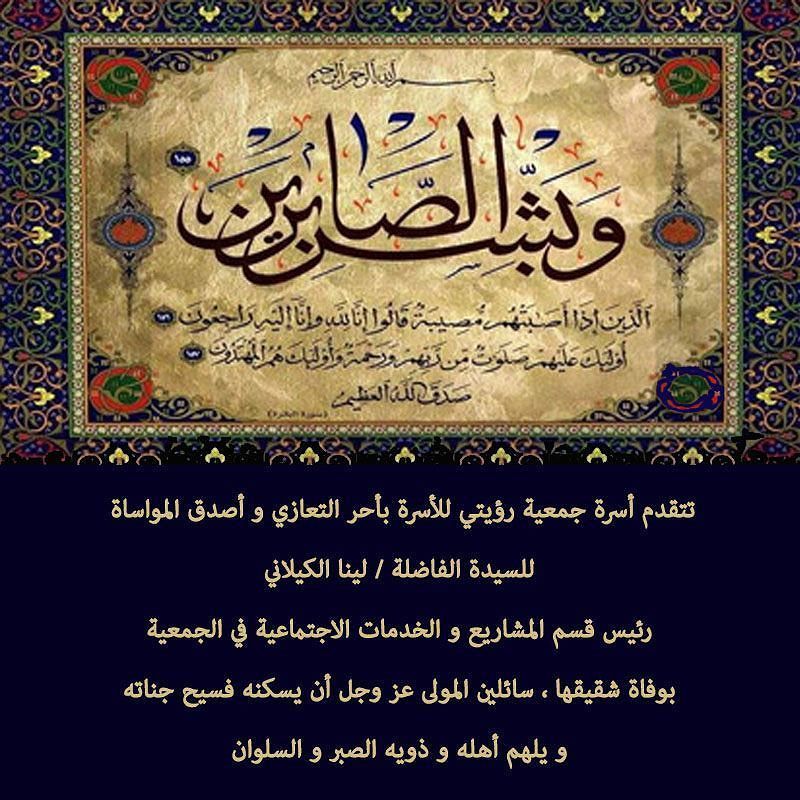 بسم الله الرحمن الرحيم
وَبَشِّرِ الصَّابِرِينَ ١٥٥
الَّذِينَ إِذَا أَصَابَتْهُم مُّصِيبَةٌ قَالُوا إِنَّا لِلَّهِ وَإِنَّا إِلَيْهِ رَاجِعُونَ ١٥٦
أُولَٰئِكَ عَلَيْهِمْ صَلَوَاتٌ مِّن رَّبِّهِمْ وَرَحْمَةٌ وَأُولَٰئِكَ هُمُ الْمُهْتَدُونَ ١٥٧
صدق الله العظيم
(سورة البقرة)
تتقدم أسرة جمعية رؤيتي للأسرة بأحر التعازي و أصدق المواساة
للسيدة الفاضلة / لينا الكيلاني
رئيس قسم المشاريع و الخدمات الاجتماعية في الجمعية
بوفاة شقيقها ، سائلين المولى عز وجل أن يسكنه فسيح جناته
و يلهم أهله و ذويه الصبر و السلوان